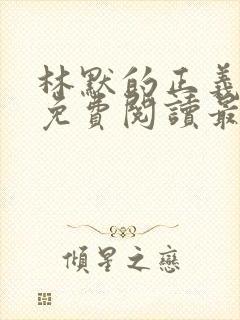 林默的正義
免費閱讀最
傾星之戀